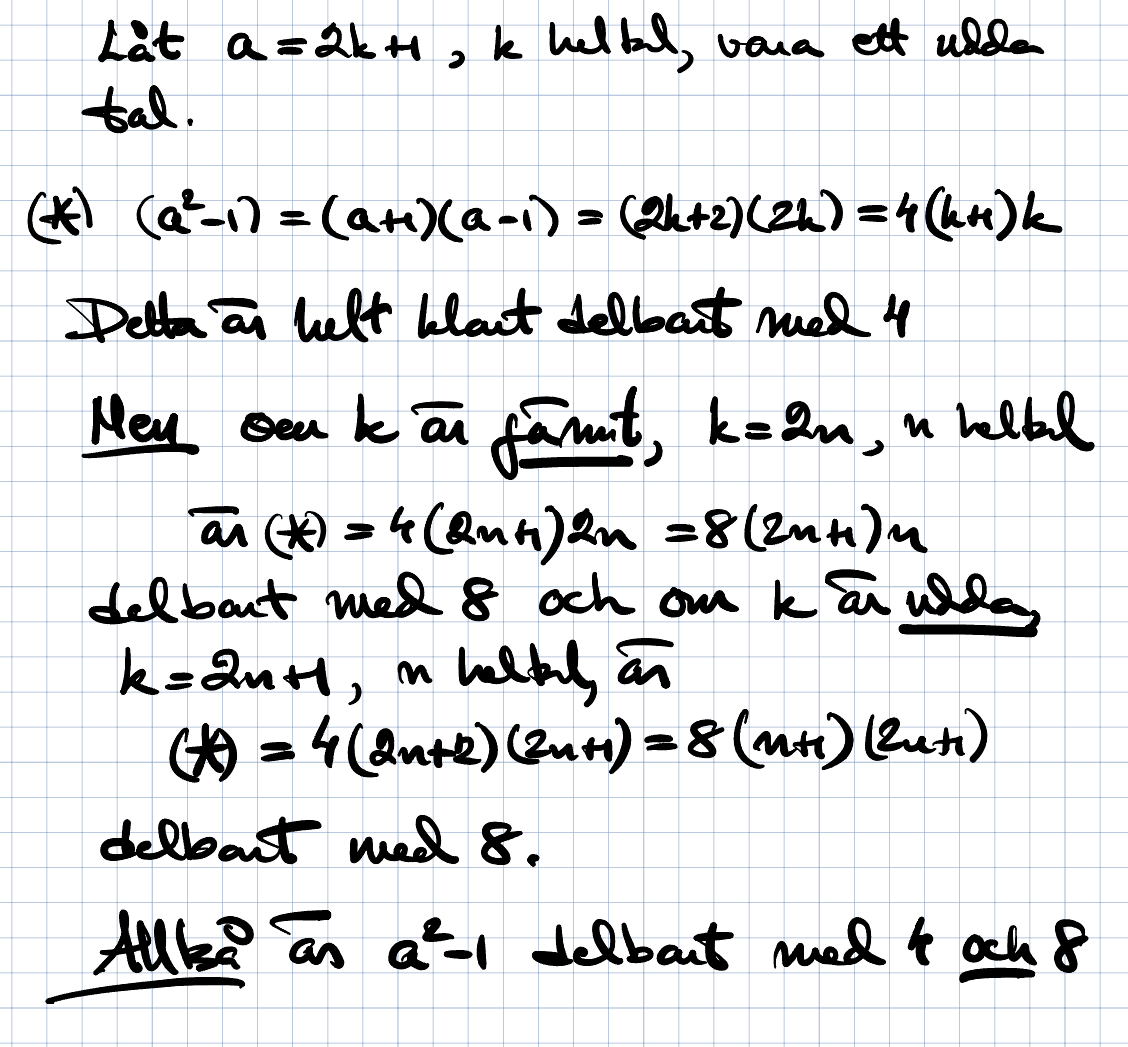 Låt a = 2k+1, k heltal, vara ett udda
tal.
(*) (a²-1) = (a+1)(a-1) = (2k+2)(2k) = 4(k+1)k
Detta är helt klart delbart med 4
Men om k är jämnt, k=2n, n heltal
är (*) = 4(2n+1)2n = 8(2n+1)n
delbart med 8 och om k är udda,
k=2n+1, n heltal, är
(*) = 4(2n+2)(2n+1) = 8(n+1)(2n+1)
delbart med 8.
Alltså är a²-1 delbart med 4 och 8